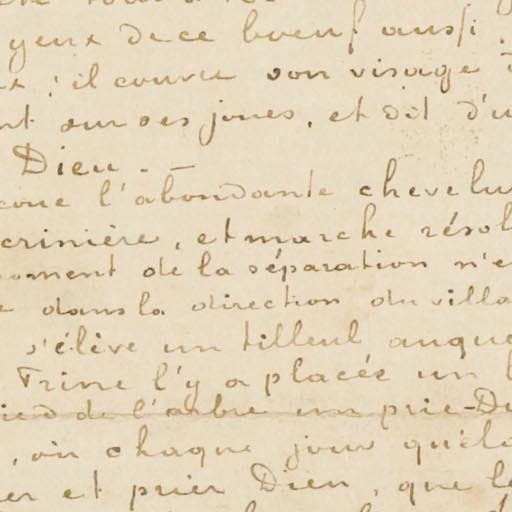 yeux de ce boeuf aussi
; il couvre son visage
nt sur ses joues, et dit d'u
Dieu. —
coue l'abondante chevelu
crinière, et marche résol
oment de la séparation n'e
dans la direction du villa
s'élève un tilleul auque
Trine l'y a placée un
ied de l'arbre un prie-Di
, où chaque jour quelq
er et prier Dieu, que le